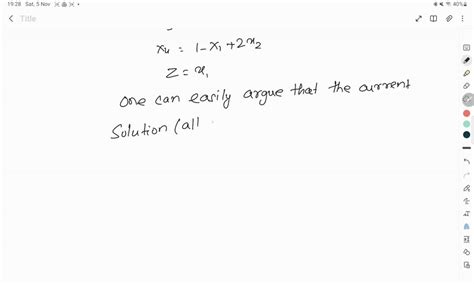 19:28 Sat, 5 Nov
40%
Title
x₄ = 1-x₁+2x₂
Z = x₁
One can easily argue that the current
Solution (all